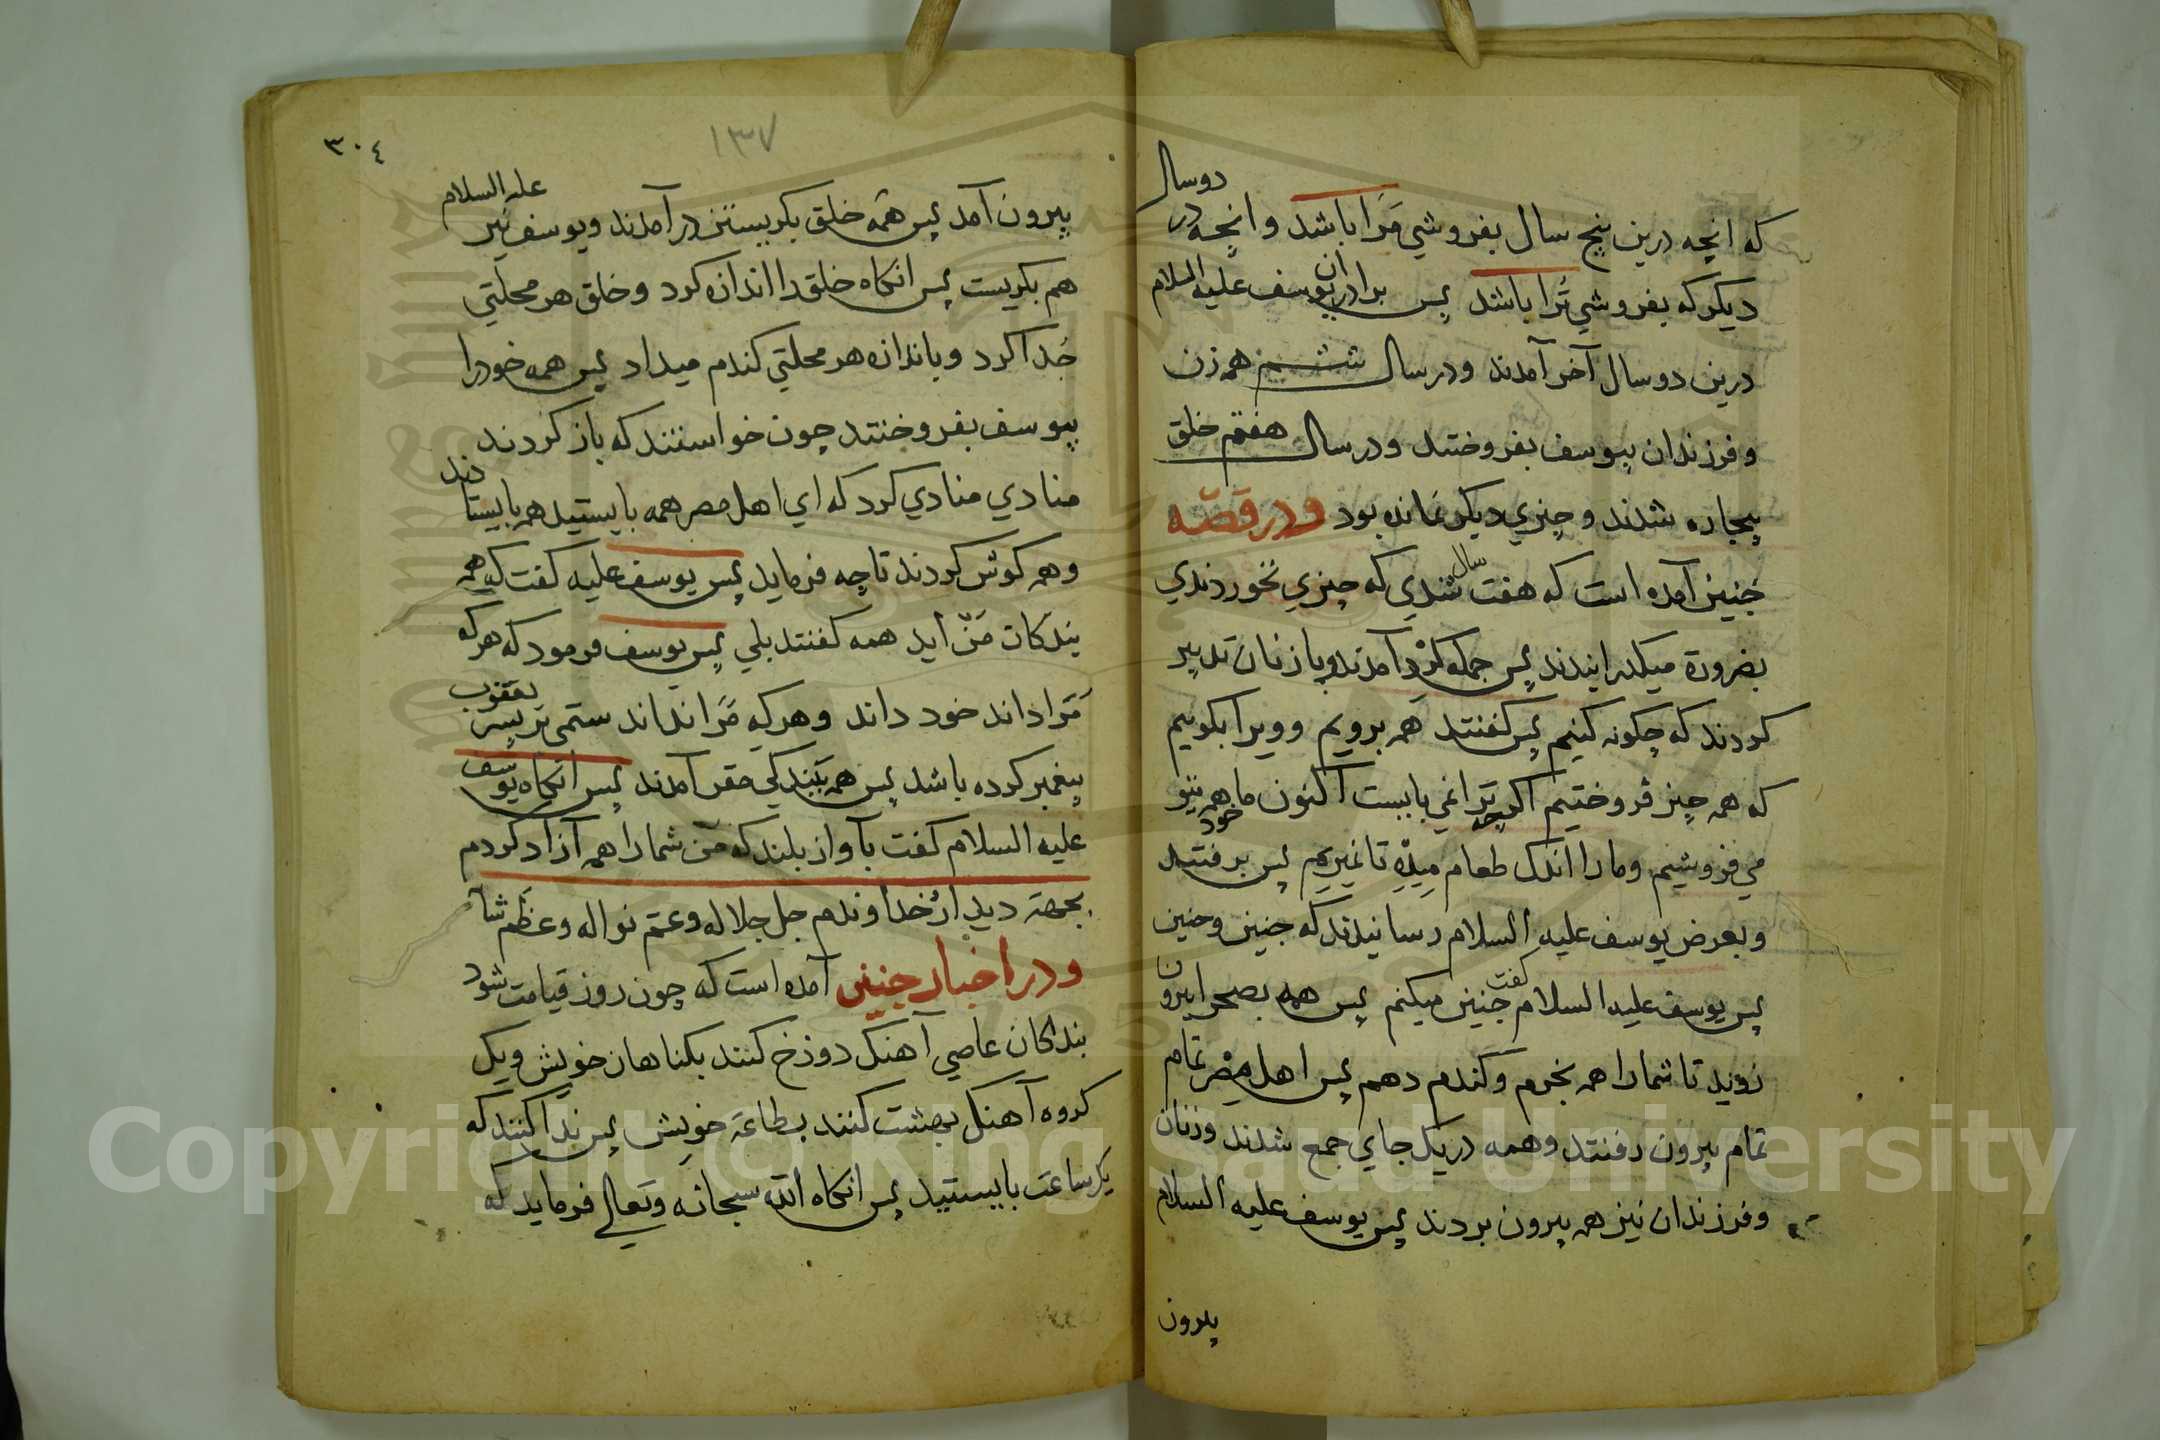 که انچه درین پنج سال بفروشي مَرَا باشد وانچه در دوسال
دیکر که بفروشي تُرا باشد پس برادران یوسف علیه السلام
درین دوسال آخر آمدند ودرسال ششم همه زن
وفرزندان بیوسف بفروختند ودرسال هفتم خلق
بیچاره شدند وچیزي دیکر نمانده بود ودر قصّه
چنین آمده است که هفت سال شدي که چیزي نخوردندي
بضرورة میکذرانیدند پس جمله کرد آمدند وبازنان تدبیر
کردند که چکونه کنیم پس کفنتد همه برویم وویرا بکوییم
که همه چیز فروختیم اکرچه ترا نمي بایست اکنون ما همه خود بتو
مي فروشیم ومارا اندک طعام میده تا نمیریم پس برفتند
وبعرض یوسف علیه السلام رسانیدند که چنین وچنین
پس یوسف علیه السلام کفت چنین میکنم پس همه بصحرا بیرون
روید تا شمارا همه بخرم وکندم دهم پس اهل مصر تمام
تمام بیرون رفنتد وهمه در یک جاي جمع شدند وزنان
وفرزندان نیز همه بیرون بردند پس یوسف علیه السلام
بیرون
٣٠٤
١٣٧
بیرون آمد پس همه خلق بکریستن درآمدند ویوسف علیه السلام نیز
هم بکریست پس انکاه خلق را اندازه کرد وخلق هر محلتي
جُدا کرد وباندازه هر محلتي کندم میداد پس همه خودرا
بیوسف بفروختند چون خواستند که باز کردند
منادي منادي کرد که اي اهل مصر همه بایستید همه بایستادند
وهمه کوش کردند تا چه فرماید پس یوسف علیه کفت که همه
بندکان مَنّ اید همه کفنتد بلي پس یوسف فرمود که هرکه
مَرا داند خود داند وهرکه مَرا نداند ستمي بر پسر یعقوب
پیغمبر کرده باشد پس همه ببندکي مقر آمدند پس انکاه یوسف
علیه السلام کفت بآواز بلند که من شمارا همه آزاد کردم
بجهة دیدار خداوندم جل جلاله وعم نواله وعظم شا
ودر اخبار چنین آمده است که چون روز قیامت شود
بندکان عاصي آهنک دوزخ کنند بکناهان خویش ویک
کروه آهنک بهشت کنند بطاعة خویش پس ندا کنند که
یکساعت بایستید پس انکاه الله سبحانه وتعالي فرماید که
Copyright © King Saud University